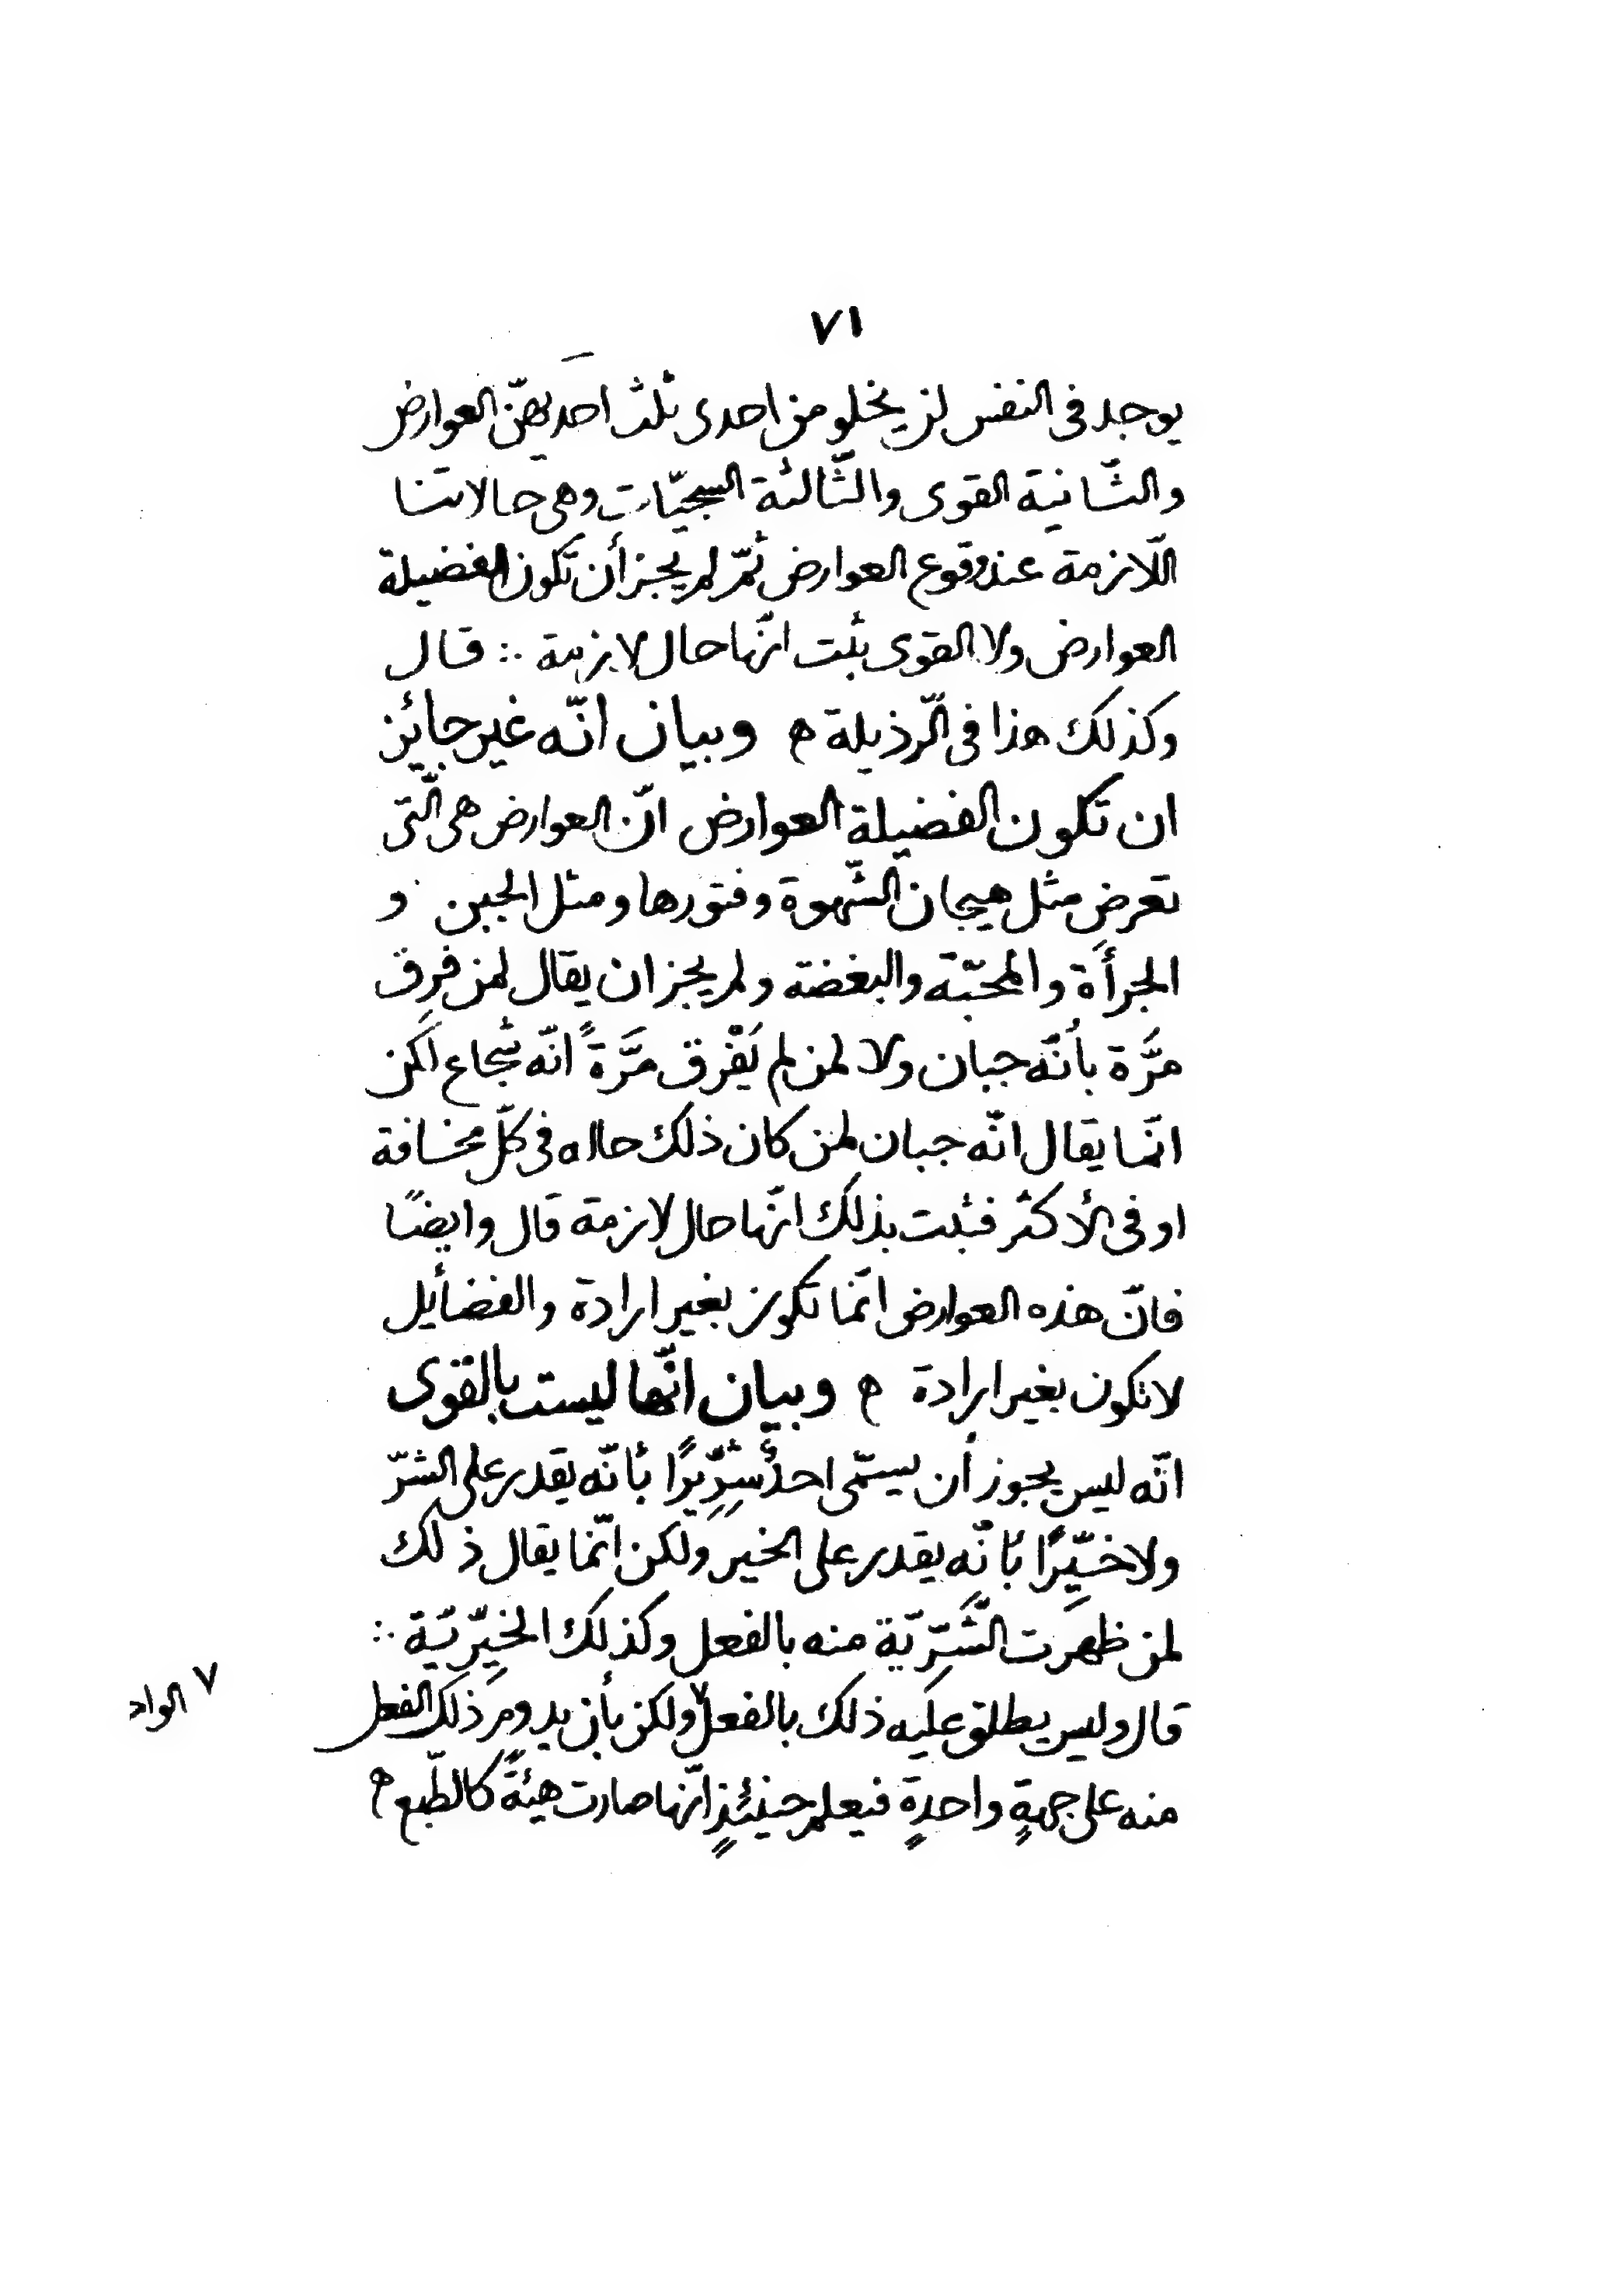 ٧١
يوجد فى النفس لن يخلو من احدى ثلث احديهنّ العوارض
والثّانية القوى والثّالثة السجيّات وهى حالاتنا
اللّازمة عند وقوع العوارض ثمّ لم يجز أن تكون الفضيلة
العوارض ولا القوى ثبت انّها حال لازمة ∴ قال
وكذلك هذا فى الرّذيلة ه وبيان انّه غير جائز
ان تكون الفضيلة العوارض انّ العوارض هى الّتى
تعرض مثل هيجان الشّهوة وفتورها ومثل الجبن و
الجرأة والمحبّة والبغضة ولم يجز ان يقال لمن فرِق
مرَّة بأنّه جبان ولا لمن لم يَفْرق مرَّةً انّه شجاع لكن
انّما يقال انّه جبان لمن كان ذلك حاله فى كلّ مخافة
او فى الأكثر فثبت بذلك انّها حال لازمة قال وايضًا
فانّ هذه العوارض انّما تكون بغير ارادة والفضائل
لا تكون بغير ارادة ه وبيان انّها ليست بالقوى
انّه ليس يجوز أن يسمّى احدٌ شرِّيرًا بأنّه يقدر على الشرّ
ولا خيِّرًا بأنّه يقدر على الخير ولكن انّما يقال ذلك
لمن ظهرت الشّرِّيّة منه بالفعل وكذلك الخيِّريّة ∴
قال وليس يطلق عليه ذلك بالفعل٧ ولكن بأن يدوم ذلك الفعل
٧ الواد
منه على جهةٍ واحدةٍ فيعلم حينئذٍ انّها صارت هيئةً كالطّبع ه